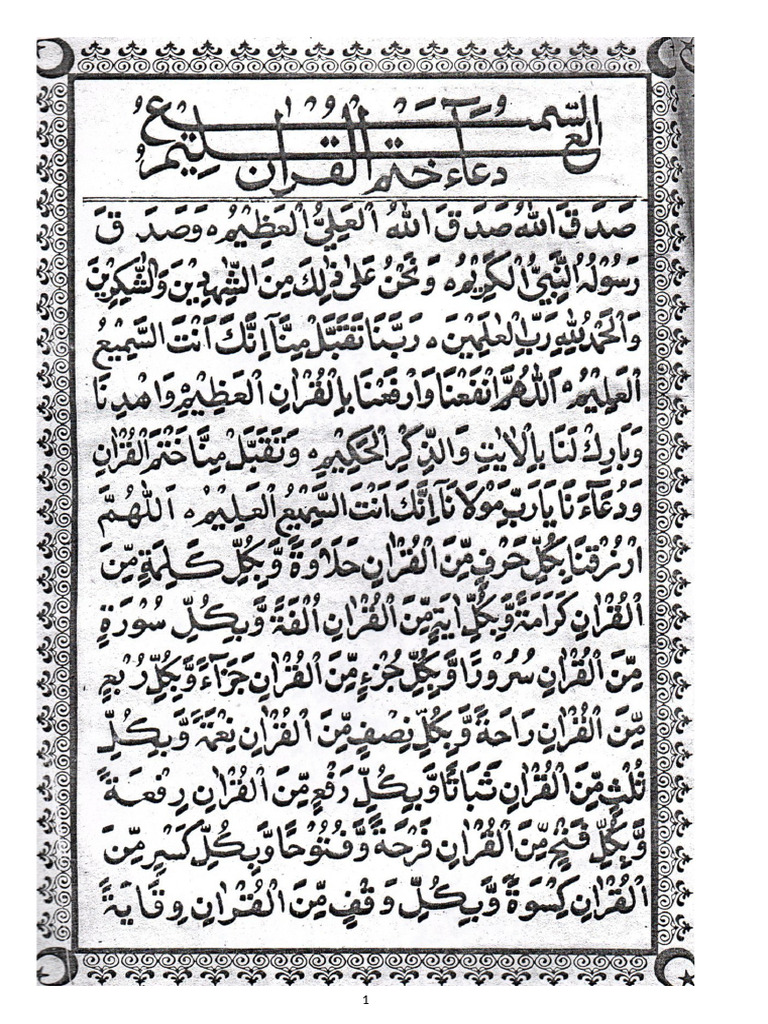 السميع العليم
دعاء ختم القرآن
صَدَقَ اللهُ صَدَقَ اللهُ الْعَلِيُّ الْعَظِيْمُ ۝ وَصَدَقَ
رَسُوْلُهُ النَّبِيُّ الْكَرِيْمُ ۝ وَنَحْنُ عَلٰى ذٰلِكَ مِنَ الشّٰهِدِيْنَ وَالشّٰكِرِيْنَ
وَالْحَمْدُ لِلّٰهِ رَبِّ الْعٰلَمِيْنَ ۝ رَبَّنَا تَقَبَّلْ مِنَّآ اِنَّكَ اَنْتَ السَّمِيْعُ
الْعَلِيْمُ ۝ اَللّٰهُمَّ انْفَعْنَا وَارْفَعْنَا بِالْقُرْاٰنِ الْعَظِيْمِ وَاهْدِنَا
وَبَارِكْ لَنَا بِالْاٰيٰتِ وَالذِّكْرِ الْحَكِيْمِ ۝ وَتَقَبَّلْ مِنَّا خَتْمَ الْقُرْاٰنِ
وَدُعَآءَنَا يَارَبَّ مَوْلَانَآ اِنَّكَ اَنْتَ السَّمِيْعُ الْعَلِيْمُ ۝ اَللّٰهُمَّ
ارْزُقْنَا بِكُلِّ حَرْفٍ مِّنَ الْقُرْاٰنِ حَلَاوَةً وَّبِكُلِّ كَلِمَةٍ مِّنَ
الْقُرْاٰنِ كَرَامَةً وَّبِكُلِّ اٰيَةٍ مِّنَ الْقُرْاٰنِ اُلْفَةً وَّبِكُلِّ سُوْرَةٍ
مِّنَ الْقُرْاٰنِ سُرُوْرًا وَّبِكُلِّ جُزْءٍ مِّنَ الْقُرْاٰنِ جَزَآءً وَّبِكُلِّ رُبْعٍ
مِّنَ الْقُرْاٰنِ رَاحَةً وَّبِكُلِّ نِصْفٍ مِّنَ الْقُرْاٰنِ نِعْمَةً وَّبِكُلِّ
ثُلُثٍ مِّنَ الْقُرْاٰنِ ثَبَاتًا وَّبِكُلِّ رَفْعٍ مِّنَ الْقُرْاٰنِ رِفْعَةً
وَّبِكُلِّ فَتْحٍ مِّنَ الْقُرْاٰنِ فَرْحَةً وَّفُتُوْحًا وَّبِكُلِّ كَسْرٍ مِّنَ
الْقُرْاٰنِ كِسْوَةً وَّبِكُلِّ وَقْفٍ مِّنَ الْقُرْاٰنِ وِقَايَةً
1